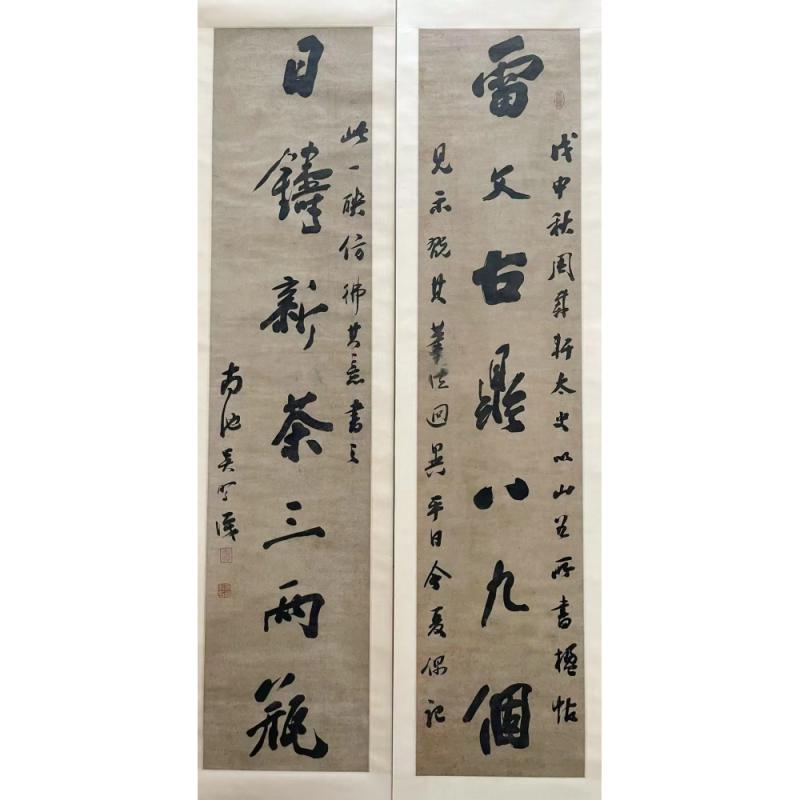 雷文古鼎八九個
戊申秋周軒太史以山谷所書楹帖
見示觀其筆法迥異平日今夏偶記
日鑄新茶三兩瓶
此一聯仿彿其意書之
南池吳識